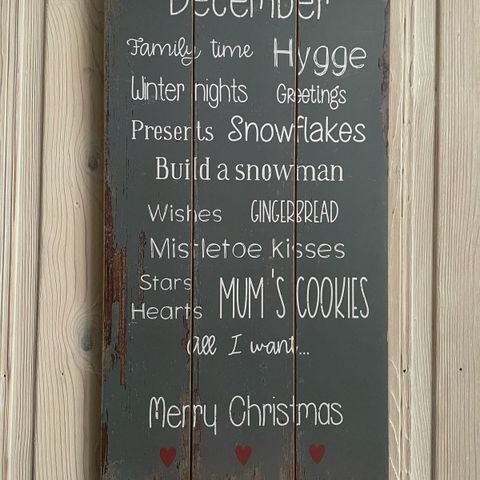 December
Family time Hygge
Winter nights Greetings
Presents Snowflakes
Build a snowman
Wishes GINGERBREAD
Mistletoe kisses
Stars
Hearts MUM'S COOKIES
All I want...
Merry Christmas